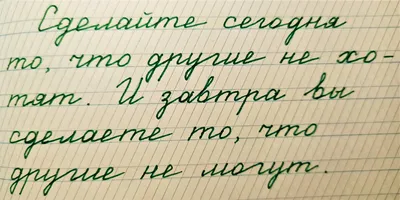 Сделайте сегодня
то, что другие не хо-
тят. И завтра вы
сделаете то, что
другие не могут.